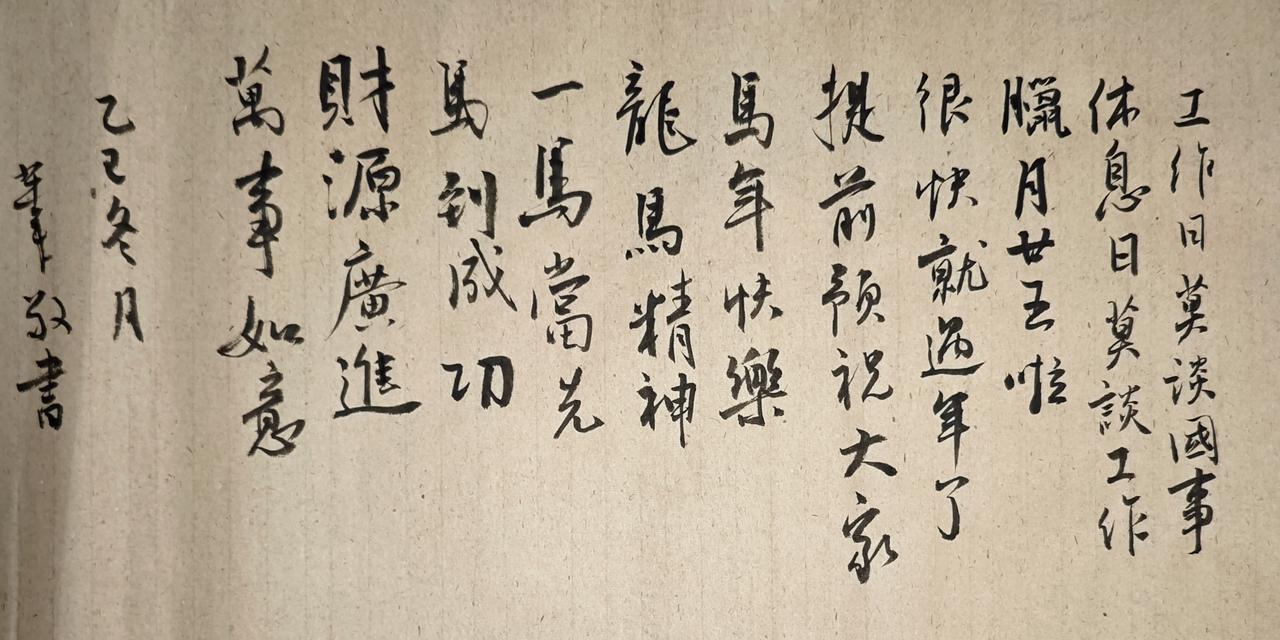 工作日莫談國事
休息日莫談工作
臘月廿五啦
很快就過年了
提前預祝大家
馬年快樂
龍馬精神
一馬當先
馬到成功
財源廣進
萬事如意
乙巳冬月
敬書